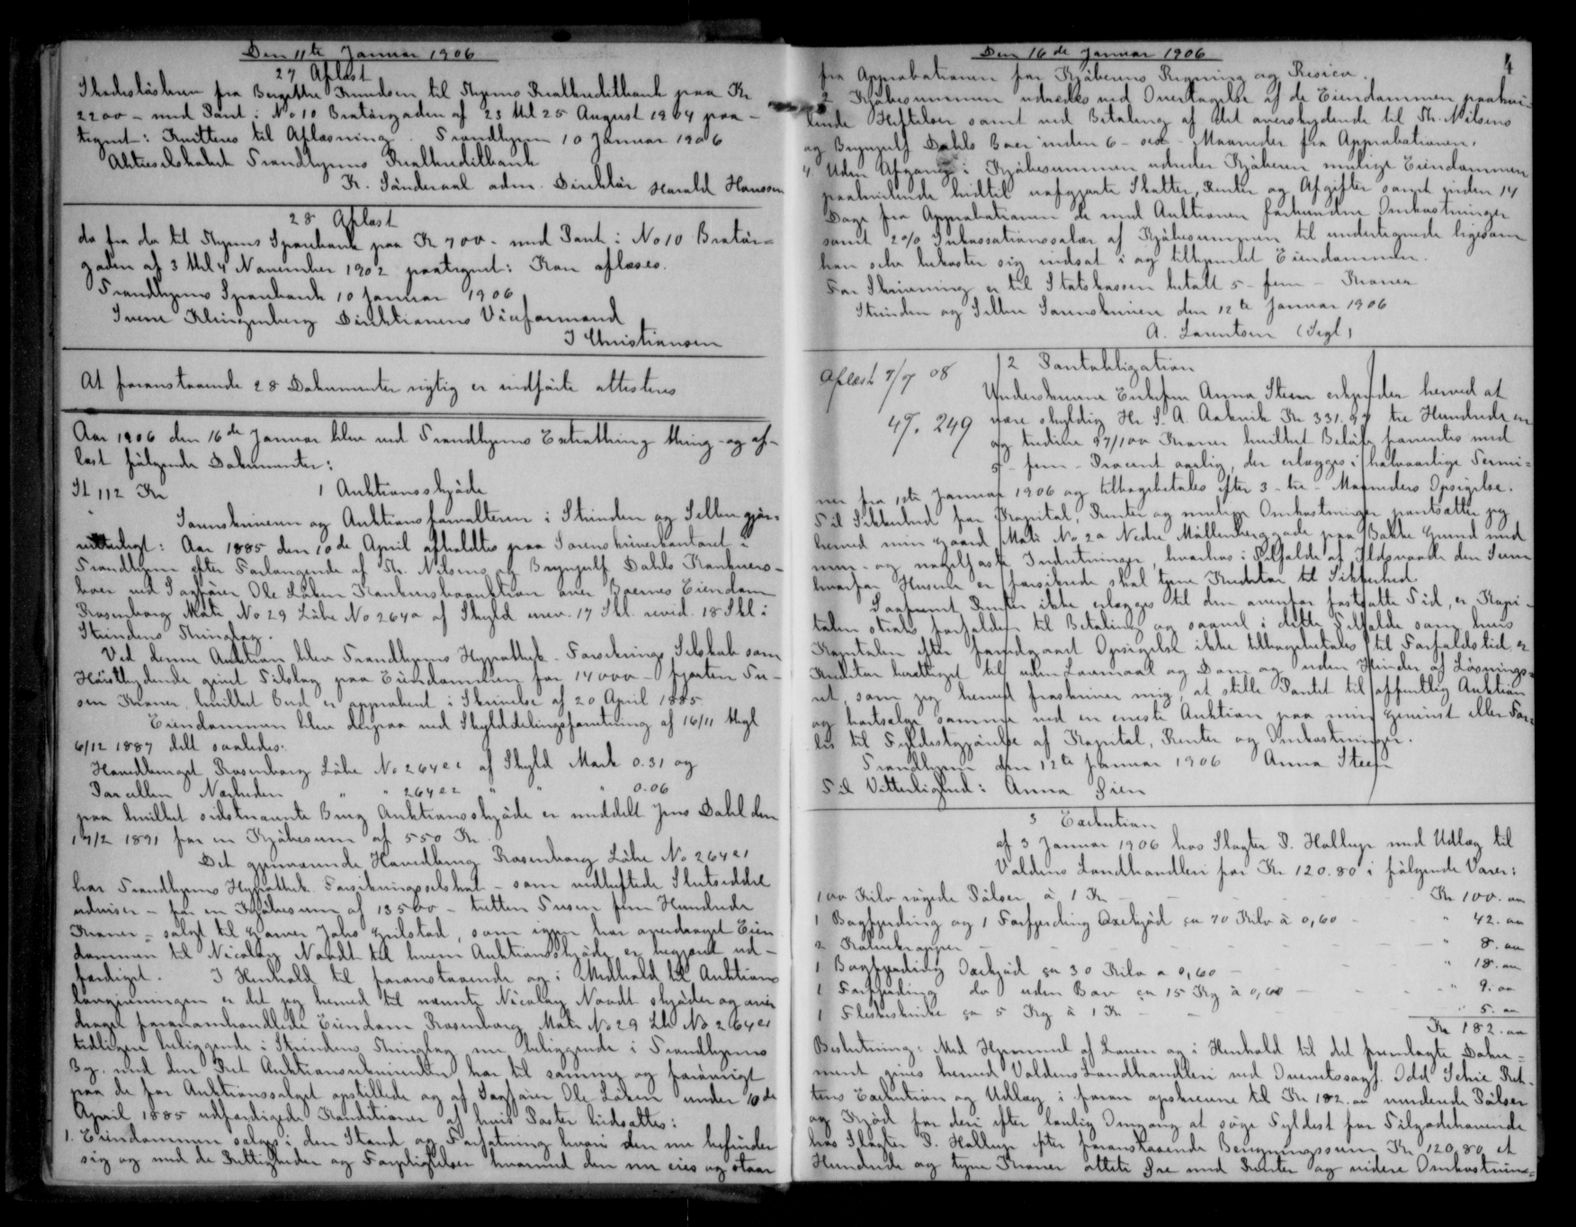 Den 11te Januar 1906
27 Aflæst
Skadesløsbrev fra Bergithe Knudsen til Thjems Realkreditbank paa Kr
2200 - med Pant i No 10 Bratørgaden af 23 thl 25 August 1904 paa-
tegnet: Kvitteres til Aflæsning. Trondhjem 10 Januar 1906
Aktieselskabet Trondhjems Realkreditbank
Kr. Sønderaal adm. Direktør Harald Hansen
28 Aflæst
do fra do til Thjems Sparebank paa Kr 700 - med Pant i No 10 Bratør=
gaden af 3 thl 4 November 1902 paategnet: Kan aflæses.
Trondhjems Sparebank 10 Januar 1906
Sverre Klingenberg Direktionens Viceformand
J Christiansen
At foranstaaende 28 Dokumenter rigtig er indførte attesteres
Aar 1906 den 16de Januar blev ved Trondhjems Extrathing thing- og af-
læst følgende Dokumenter:
St 112 Kr 1 Auktionsskjøde
Sorenskriveren og Auktionsforvalteren i Strinden og Selbu gjør-
vitterligt: Aar 1885 den 10de April afholdtes paa Sorenskriverkontoret i
Trondhjem efter Forlangende af Th. Nilsens og Brynjulf Dahls Konkurs-
boer ved Sagfører Ole Løken Konkursboauktion over Boernes Eiendom
Rosenborg Matr No 29 Løbe No 264a af Skyld urev. 17 Skl revid. 18 Skl i
Strindens Thinglag.
Ved denne Auktion blev Trondhjems Hypothek-Forsikrings Selskab som
Høistbydende givet Tilslag paa Eiendommen for 14000 - fjorten Tu-
sen Kroner, hvilket Bud er approbert i Skrivelse af 20 April 1885.
Eiendommen blev derpaa ved Skylddelingsforretning af 16/11 thgl
6/12 1887 delt saaledes:
Hovedbruget Rosenborg Løbe No 264e1 af Skyld Mark 0.31 og
Parcellen Nyheden " " 264e2 " " " 0.06
paa hvilket sidstnævnte Brug Auktionsskjøde er meddelt Jens Dahl den
17/2 1891 for en Kjøbesum af 550 Kr.
Det gjenværende Hovedbrug Rosenborg Løbe No 264e1
har Trondhjems Hypothek Forsikringsselskab - som vedheftede Slutseddel
udviser - for en Kjøbesum af 13500 - tretten Tusen fem Hundrede
Kroner - solgt til Garver Johs Gulstad, som igjen har overdraget Eien
dommen til Nicolay Naadt til hvem Auktionsskjøde er begjært ud-
færdiget. I Henhold til foranstaaende og i Medhold til Auktions
lovgivningen er det jeg herved til nævnte Nicolay Naadt skjøder og over
drager foranomhandlede Eiendom Rosenborg Matr No 29 Lb No 264e1
tidligere beliggende i Strindens Thinglag nu beliggende i Trondhjems
By. med den Ret Auktionsrekvirenten har til samme og forøvrigt
paa de for Auktionssalget opstillede og af Sagfører Ole Løken under 10de
April 1885 udfærdigede Konditioner af hvis Poster hidsættes:
1. Eiendommen sælges i den Stand og Forfatning hvori den nu befinder
sig og med de Rettigheder og Forpligtelser hvormed den nu eies og staar
Den 16de Januar 1906
4
fra Approbationen for Kjøberens Regning og Resico.
2 Kjøbesummen udredes ved Overtagelse af de Eiendommen paahvi-
lende Heftelser samt ved Betaling af det overskydende til Th. Nilsens
og Brynjulf Dahls Boer inden 6 - sex - Maaneder fra Approbationen.
4. Uden Afgang i Kjøbesummen udreder Kjøberen mulige Eiendommen
paahvilende hidtil uafgjorte Skatter, Renter og Afgifter samt inden 14
Dage fra Approbationen de med Auktionen forbundne Omkostninger
samt 2% Inkassationssalær af Kjøbesummen til undertegnede ligesom
han selv bekoster sig indsat i og tilhjemlet Eiendommen.
For Skrivning er til Statskassen betalt 5 - fem - Kroner
Strinden og Selbu Sorenskriveri den 12te Januar 1906
A. Lorentsen (Segl)
Aflæst 7/7 08
2 Pantobligation
Underskrevne Enkefru Anna Steen erkjender herved at
47. 249
være skyldig Hr S. A. Aakvik Kr 331.97 tre Hundrede en
og tredive 97/100 Kroner hvilket Beløb forrentes med
5 - fem - Procent aarlig, der erlægges i halvaarlige Termi=
ner fra 1ste Januar 1906 og tilbagebetales efter 3 - tre - Maaneders Opsigelse.
Til Sikkerhed for Kapital, Renter og mulige Omkostninger pantsætter jeg
herved min Gaard Matr No 2a Nedre Møllenberggade paa Bakke Grund med
mur- og nagelfaste Indretninger, hvorhos i Tilfælde af Ildsvaade den Sum
hvorfor Husene er forsikrede skal tjene Kreditor til Sikkerhed.
Saafremt Renter ikke erlægges til den ovenfor fastsatte Tid, er Kapi-
talen straks forfalden til Betaling og saavel i dette Tilfælde som hvis
Kapitalen efter foregaaet Opsigelse ikke tilbagebetales til Forfaldstid er
Kreditor berettiget til uden Lovmaal og Dom og uden Hinder af Løsnings-
ret, som jeg herved fraskriver mig, at stille Pantet til offentlig Auktion
og bortsælge samme ved en eneste Auktion paa min Gevinst eller For-
lis til Fyldestgjørelse af Kapital, Renter og Omkostninger.
Trondhjem den 12te Januar 1906 Anna Steen
Til Vitterlighed: Anna Sien
3 Exekution
af 3 Januar 1906 hos Slagter P. Hallup med Udlæg til
Voldens Landhandleri for Kr 120.80 i følgende Varer:
100 Kilo røgede Pølser à 1 Kr - - - Kr 100.00
1 Bagfjerding og 1 Forfjerding Oxekjød ca 70 Kilo à 0,60 - - " 42.00
2 Kalvekropper - - - - " 8.00
1 Bagfjerding Oxekjød ca 30 Kilo a 0,60 - - " 18.00
1 Forfjerding do uden Bov ca 15 Kg à 0,60 - - " 9.00
1 Fleskeskinke ca 5 Kg à 1 Kr - - - " 5.00
Kr 182.00
Beslutning: Med Hjemmel af Loven og i Henhold til det fremlagte Doku=
ment gives herved Voldens Landhandleri ved Overretssagf. Odd Schie Ret-
tens Exekution og Udlæg i foran opskrevne til Kr 182.00 vurderede Pølser
og Kjød for deri efter lovlig Omgang at søge Fyldest for Tilgodehavende
hos Slagter P. Hallup efter foranstaaende Beregningssum Kr 120,80 et
Hundrede og tyve Kroner otteti Øre med Renter og videre Omkostnin=